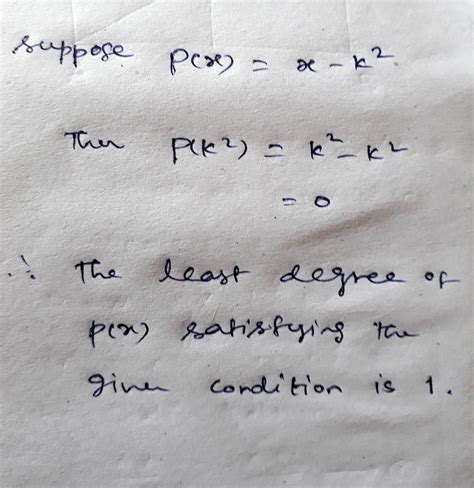 suppose P(x) = x - k²
Then P(k²) = k² - k²
= 0
∴ The least degree of
p(x) satisfying the
given condition is 1.